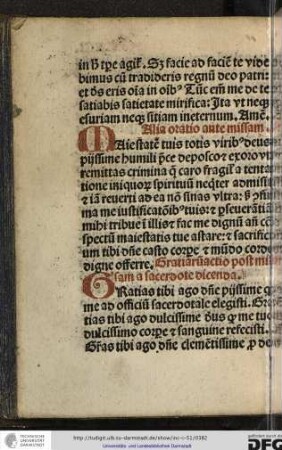 in h̄ tꝑe agiť. Sꝫ facie ad faciē te vide
bimus cū tradideris regnū deo patri:
et ds̄ eris oīa in oīb⁹ Tūc em̄ me de te
satiabis satietate mirifica: Ita vt neqꝫ
esuriam neqꝫ sitiam ineternum. Amē.
Alia oratio ante missam.
MAiestatē tuis totis virib⁹ deus
pijssime humili p̄ce deposco ⁊ exoro vt
remittas crimina q̄ caro fragil' a tenta
tione iniquoꝝ spirituū neq̄ter admisit
⁊ iā reuerti ad ea nō sinas vltra: s̄ ꝯfir
ma me iustificatōib⁹ tuis: ⁊ ꝑseuerātiā
mihi tribue ī illis: ⁊ fac me dignū an̄ cō
spectū maiestatis tue astare: ⁊ sacrifici
um tibi dn̄e casto corꝑe ⁊ mūdo corde
digne offerre. Gratiaꝝ actio post mis
sam a sacerdote dicenda.
GRatias tibi ago dn̄e pijssime q
me ad officiū sacerdotale elegisti. Gra
tias tibi ago dulcissime dn̄s q̄ me tuo
dulcissimo corꝑe ⁊ sanguine refecisti.
Gr̄as tibi ago dn̄e clemētissime ꝓ de
TECHNISCHE UNIVERSITÄT DARMSTADT
http://tudigit.ulb.tu-darmstadt.de/show/inc-i-51/0382
Universitäts- und Landesbibliothek Darmstadt
gefördert durch die
DFG